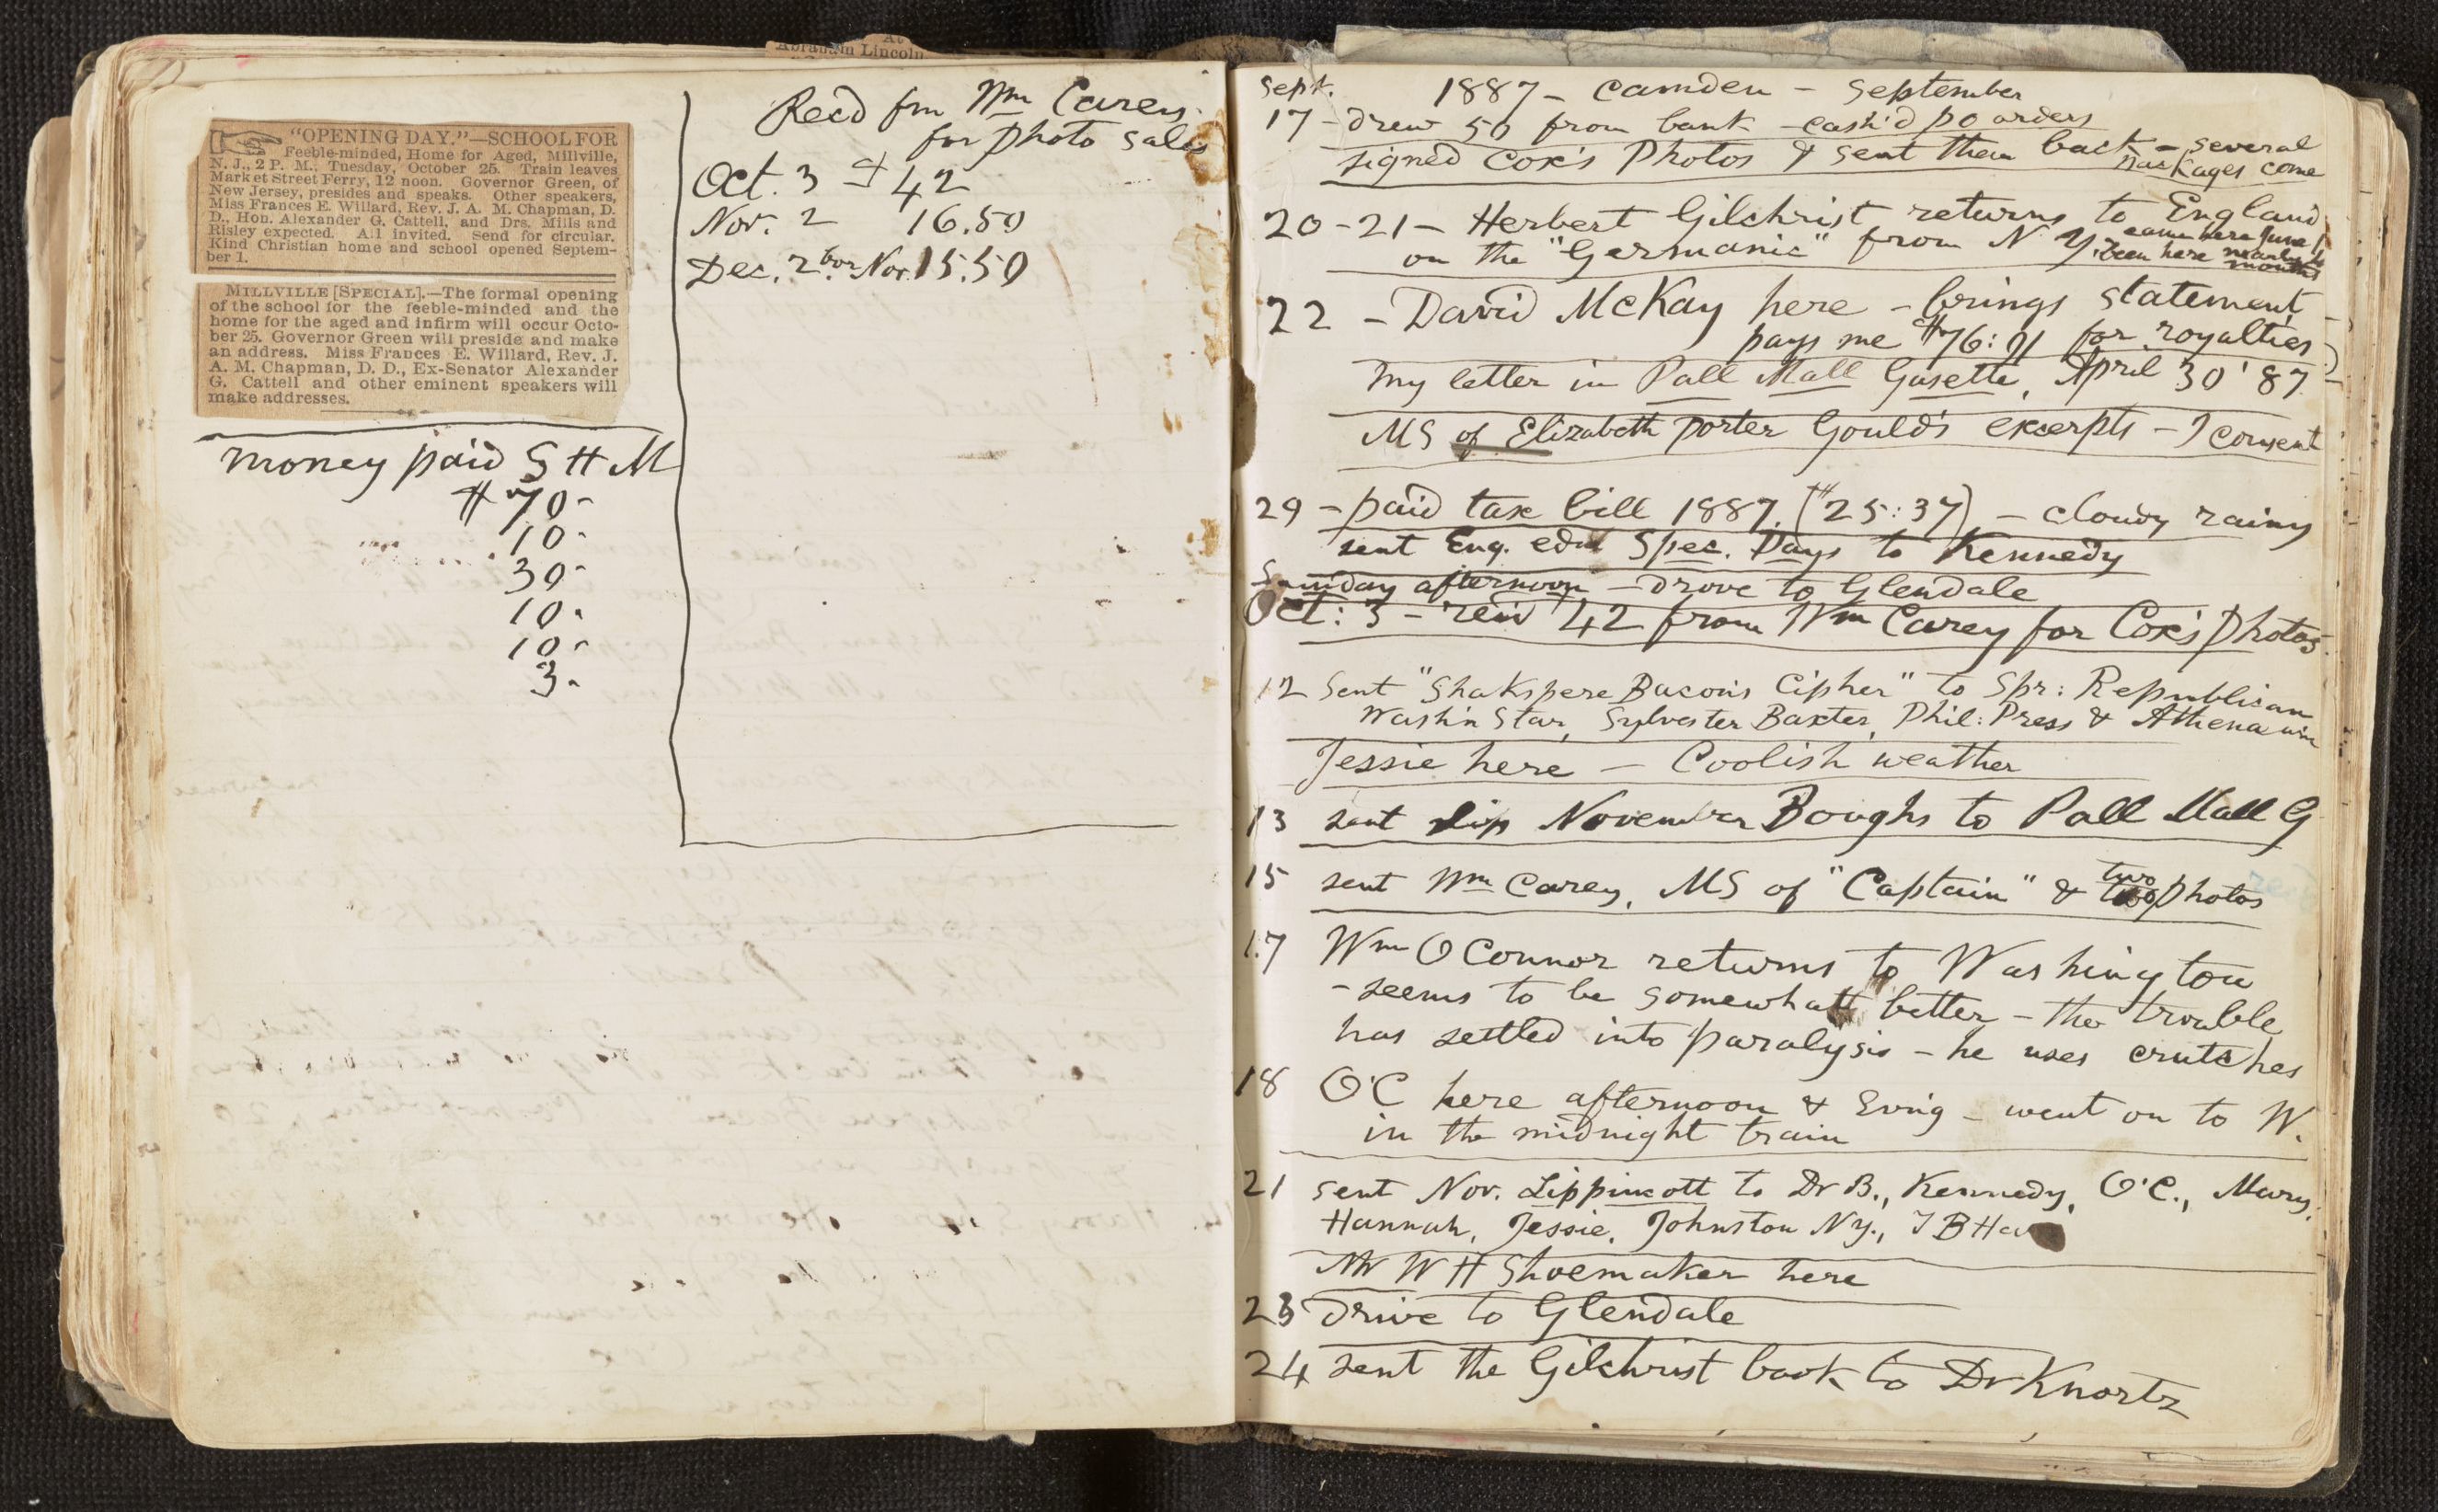 At
Abraham Lincoln
"OPENING DAY."—SCHOOL FOR
Feeble-minded, Home for Aged, Millville,
N. J., 2 P. M., Tuesday, October 25. Train leaves
Market Street Ferry, 12 noon. Governor Green, of
New Jersey, presides and speaks. Other speakers,
Miss Frances E. Willard, Rev. J. A. M. Chapman, D.
D., Hon. Alexander G. Cattell, and Drs. Mills and
Risley expected. All invited. Send for circular.
Kind Christian home and school opened Septem-
ber 1.
MILLVILLE [SPECIAL].—The formal opening
of the school for the feeble-minded and the
home for the aged and infirm will occur Octo-
ber 25. Governor Green will preside and make
an address. Miss Frances E. Willard, Rev. J.
A. M. Chapman, D. D., Ex-Senator Alexander
G. Cattell and other eminent speakers will
make addresses.
money paid S H M
$70-
10-
30-
10-
10-
3-
Recd fm Wm Carey
for photo sales
Oct. 3 $42
Nov. 2 16.50
Dec. 2 for Nov. 15.50
Sept. 1887 - Camden - September
17 - drew 50 from bank - cash'd p o orders
signed Cox's Photos & sent them back - several
packages come
20-21 - Herbert Gilchrist returns to England
on the "Germanic" from N Y. came here June 1
been here nearly 4
months
22 - David McKay here - brings statement -
pays me $76:91 for royalties
my letter in Pall Mall Gazette, April 30 '87
MS of Elizabeth Porter Gould's excerpts - I consent
29 - paid tax bill 1887. ($25:37) - cloudy rainy
sent Eng. edn Spec. Days to Kennedy
Sunday afternoon - drove to Glendale
Oct: 3 - rec'd 42 from Wm Carey for Cox's photos
12 sent "Shakspere Bacon's Cipher" to Spr: Republican
Wash'n Star, Sylvester Baxter, Phil: Press & Athenaeum
Jessie here - Coolish weather
13 sent slip November Boughs to Pall Mall G
15 sent Wm Carey, MS of "Captain" & two photos
17 Wm O Connor returns to Washington
- seems to be somewhat better - the trouble
has settled into paralysis - he uses crutches
18 O'C here afternoon & Evn'g - went on to W.
in the midnight train
21 sent Nov. Lippincott to Dr B., Kennedy, O'C., Mary,
Hannah, Jessie, Johnston N Y., T B
Mr W H Shoemaker here
23 drive to Glendale
24 sent the Gilchrist book to Dr Knortz